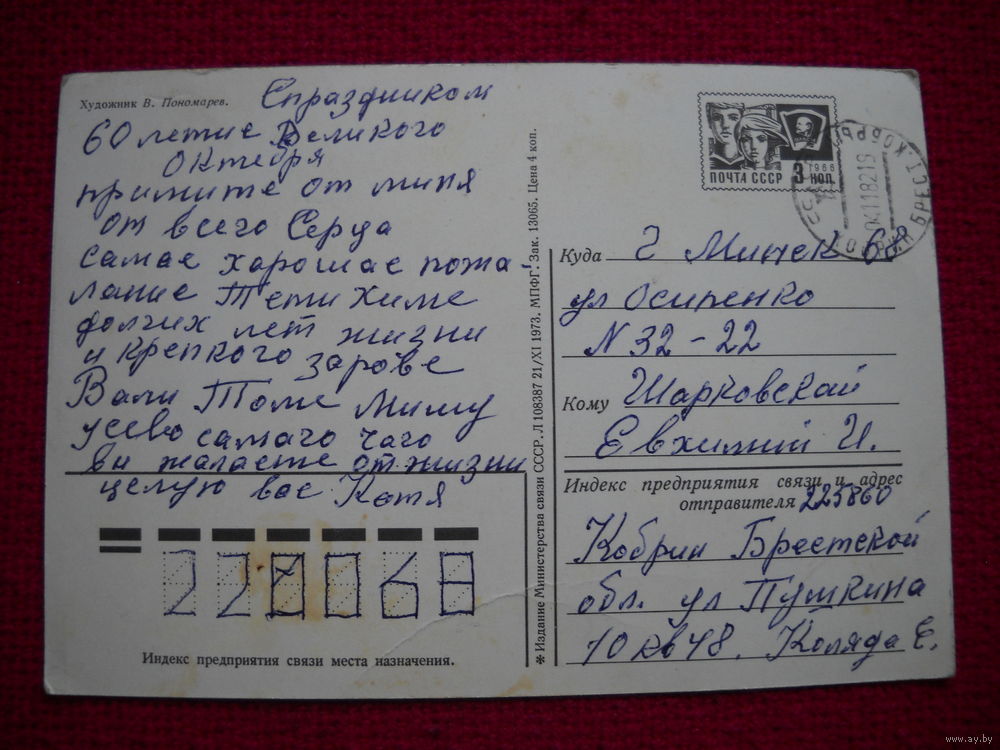 Художник В. Пономарев.
Спраздником
60 летие Великого
Октября
примите от миня
от всего Серца
самае харошае пожа
лание Тети Химе
долгих лет жизни
и крепкого
Вали Томе Мишу
усево самаго чаго
вы жалаете от жизни
целую вас Катя
Индекс предприятия связи места назначения.
✱ Издание Министерства связи СССР. Л 108387 21/XI 1973. МПФГ. Зак. 13065. Цена 4 коп.
ПОЧТА СССР 3 КОП.
1966
БРЕСТ
Куда г Минск 68
ул Осипенко
N 32-22
Кому Шарковской
Евхимий И.
Индекс предприятия связи и адрес
отправителя 225860
Кобрин Брестской
обл. ул Пушкина
10 кв 48. Коляда Е.
220068
www.ay.by